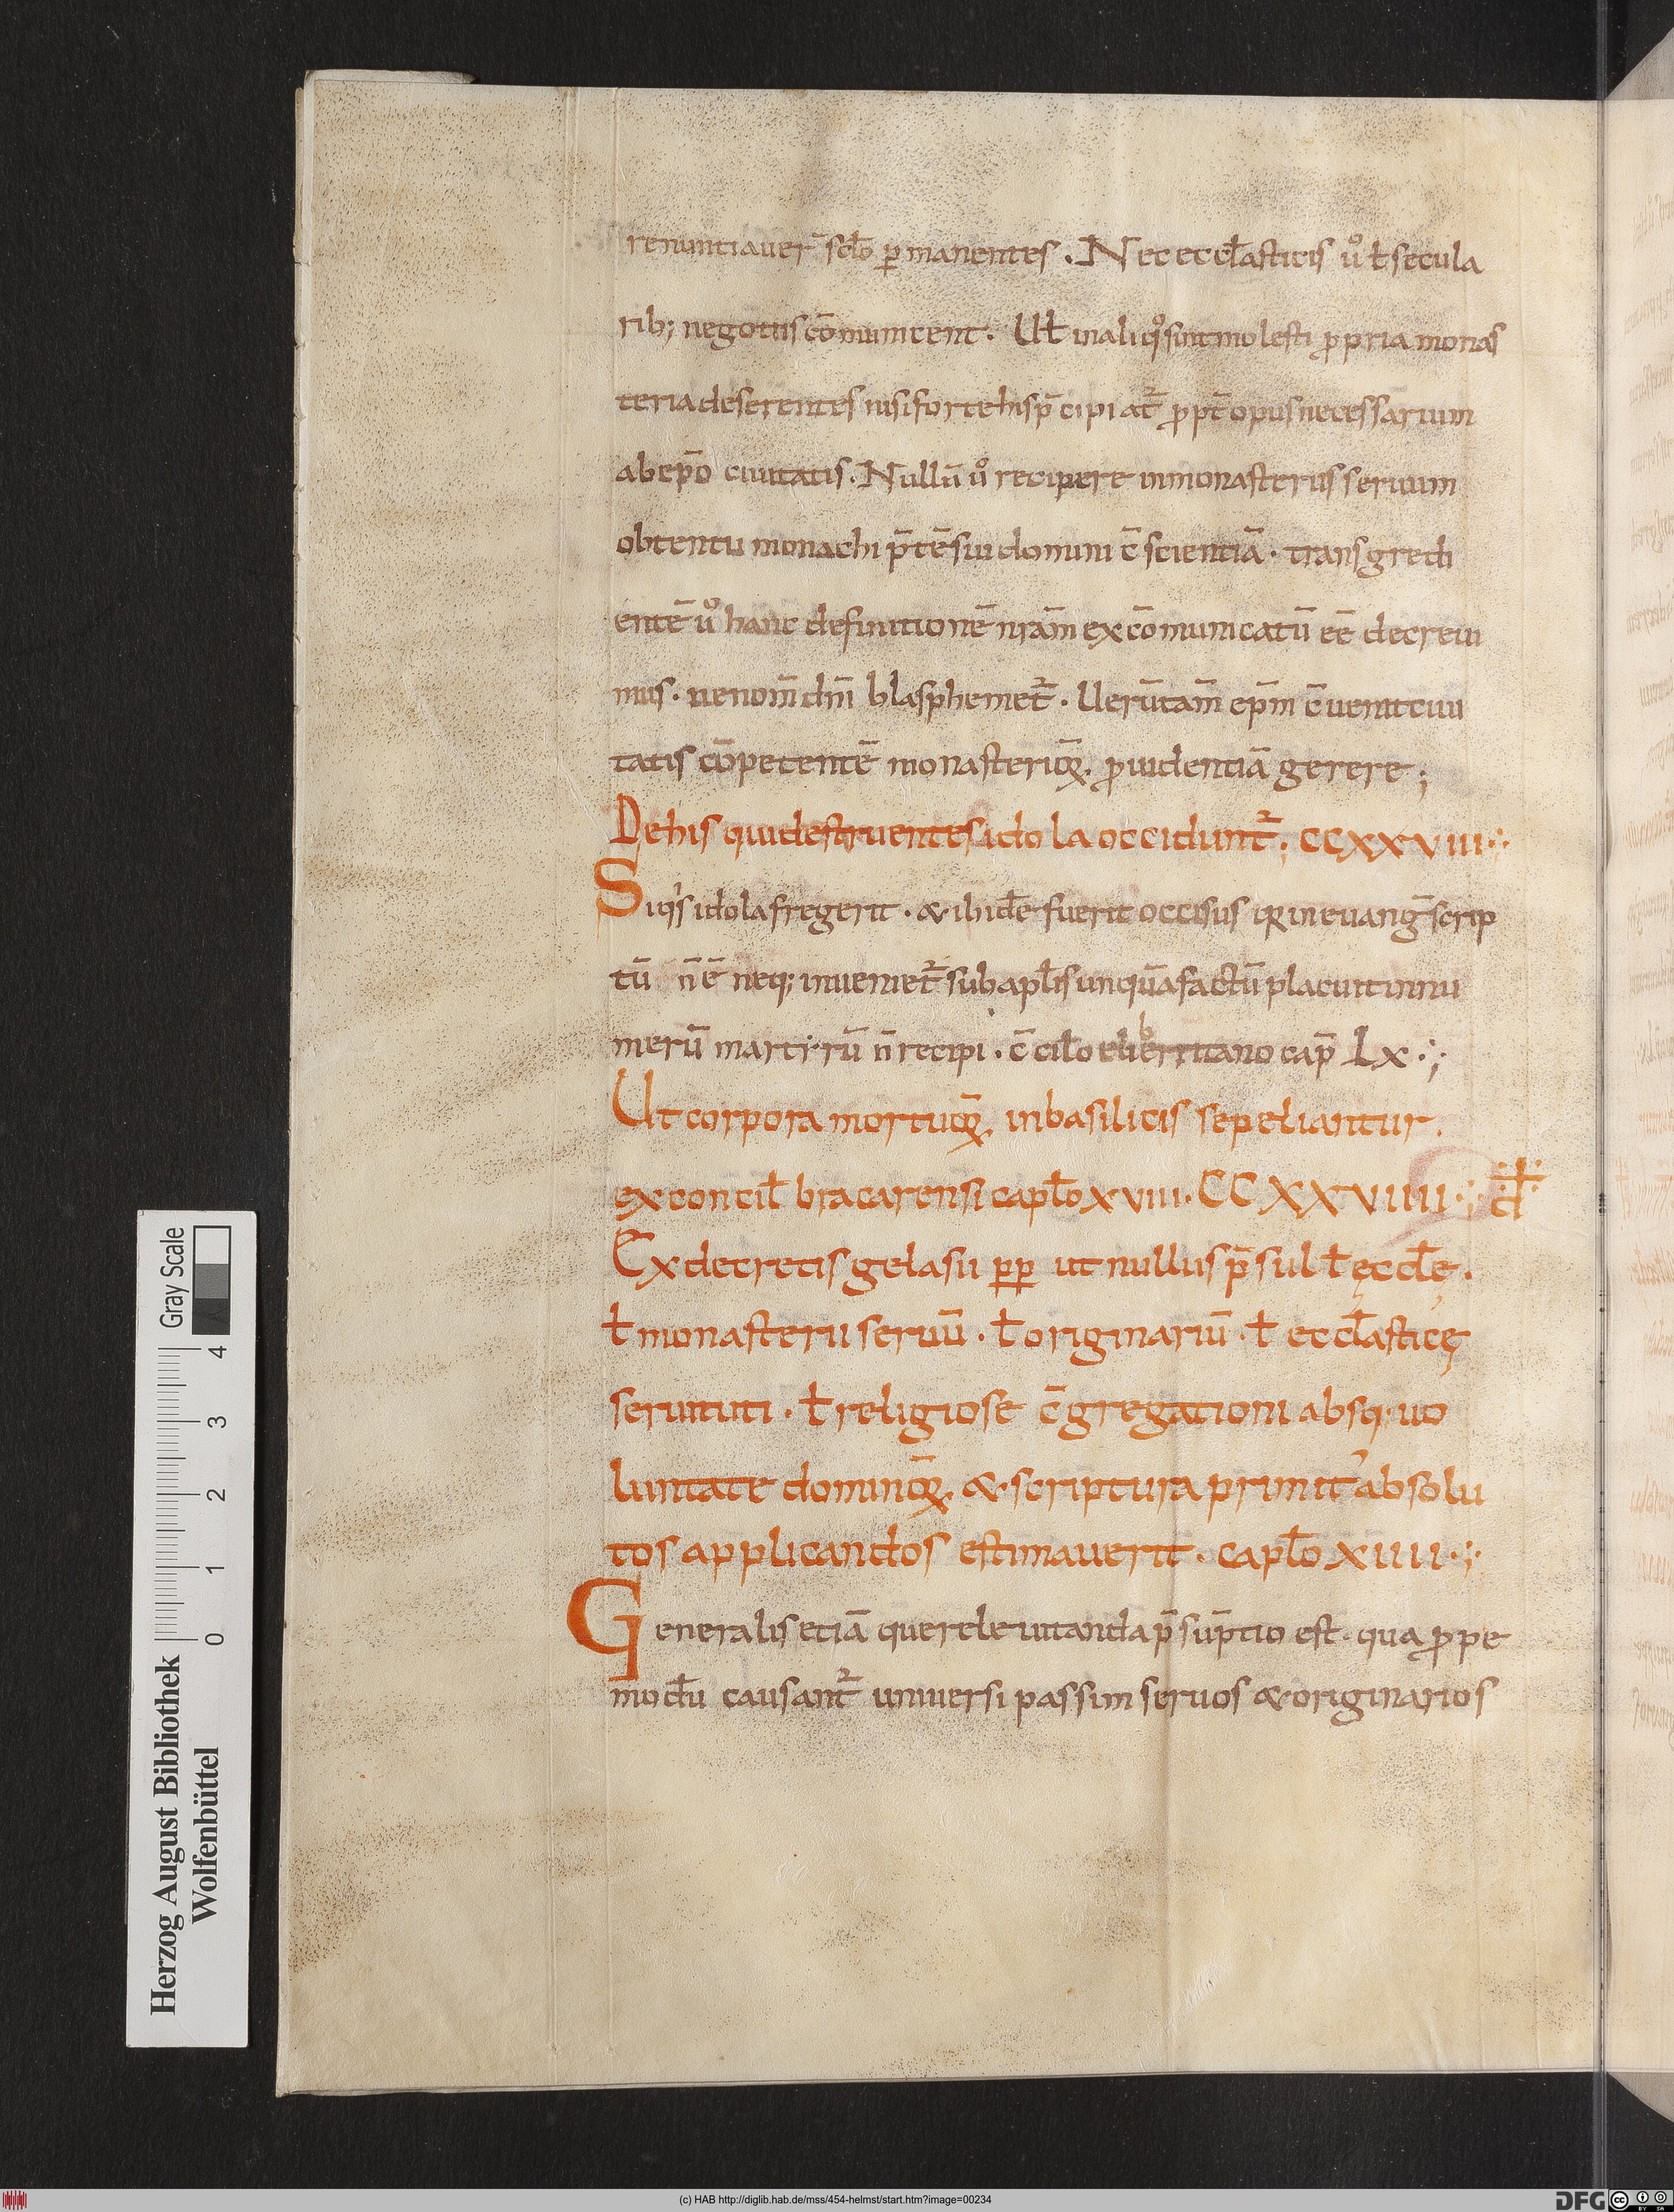 renuntiauer̄ scło ꝑmanentes . Nec eccłasticis uͦ ł secula
rib; negotiis cōmunicent . Uł inaliqͦ sint molesti ꝓpria monas
teria deserentes nisi forte his p̄cipiat᷑ ꝓpt̄ opus necessarium
ab ep̄o ciuitatis . Nullū uͦ recipere in monasteriis seruum
obtentu monachi p̄tē sui domini c̄scientiā . transgredi
entē uͦ hanc definitionē nr̄am excōmunicatū eē decreui
mus . ne nom̄ dn̄i blasphemet᷑ . Uerūtam̄ ep̄m c̄uenit ciui
tatis cōpetentē monasterioꝝ ꝓuidentiā gerere ;
De his qui destruentes idola occidunt᷑ ; CCXXVIII
Siqͥs idola fregerit . & ibidē fuerit occisus qꝛ in euanḡ scrip
tū n̄ ē neq; inueniet᷑ sub apłis unquā factū placuit in nu
merū martyrū n̄ recipi . c̄cilo eliberritano cap̄ Lx
b
Ut corpora mortuoꝝ in basilicis sepeliantur .
ex concił bracarensi capło xviii . CCXXVIIII đ
Ex decretis gelasii pp ut nullus p̄sul ł ęccłę .
ł monasterii seruū . ł originariū . ł eccłasticę
seruituti . ł religiose c̄gregationi absq; uo
luntate dominoꝝ & scriptura primit᾽ absolu
tos applicandos estimauerit . capło xiiii
Generalis etiā querele uitanda p̄sūptio est . qua ꝓpe
modū causant᷑ uniuersi passim seruos & originarios
Gray Scale
4 3 2 1 0
Herzog August Bibliothek
Wolfenbüttel
(c) HAB http://diglib.hab.de/mss/454-helmst/start.htm?image=00234
DFG